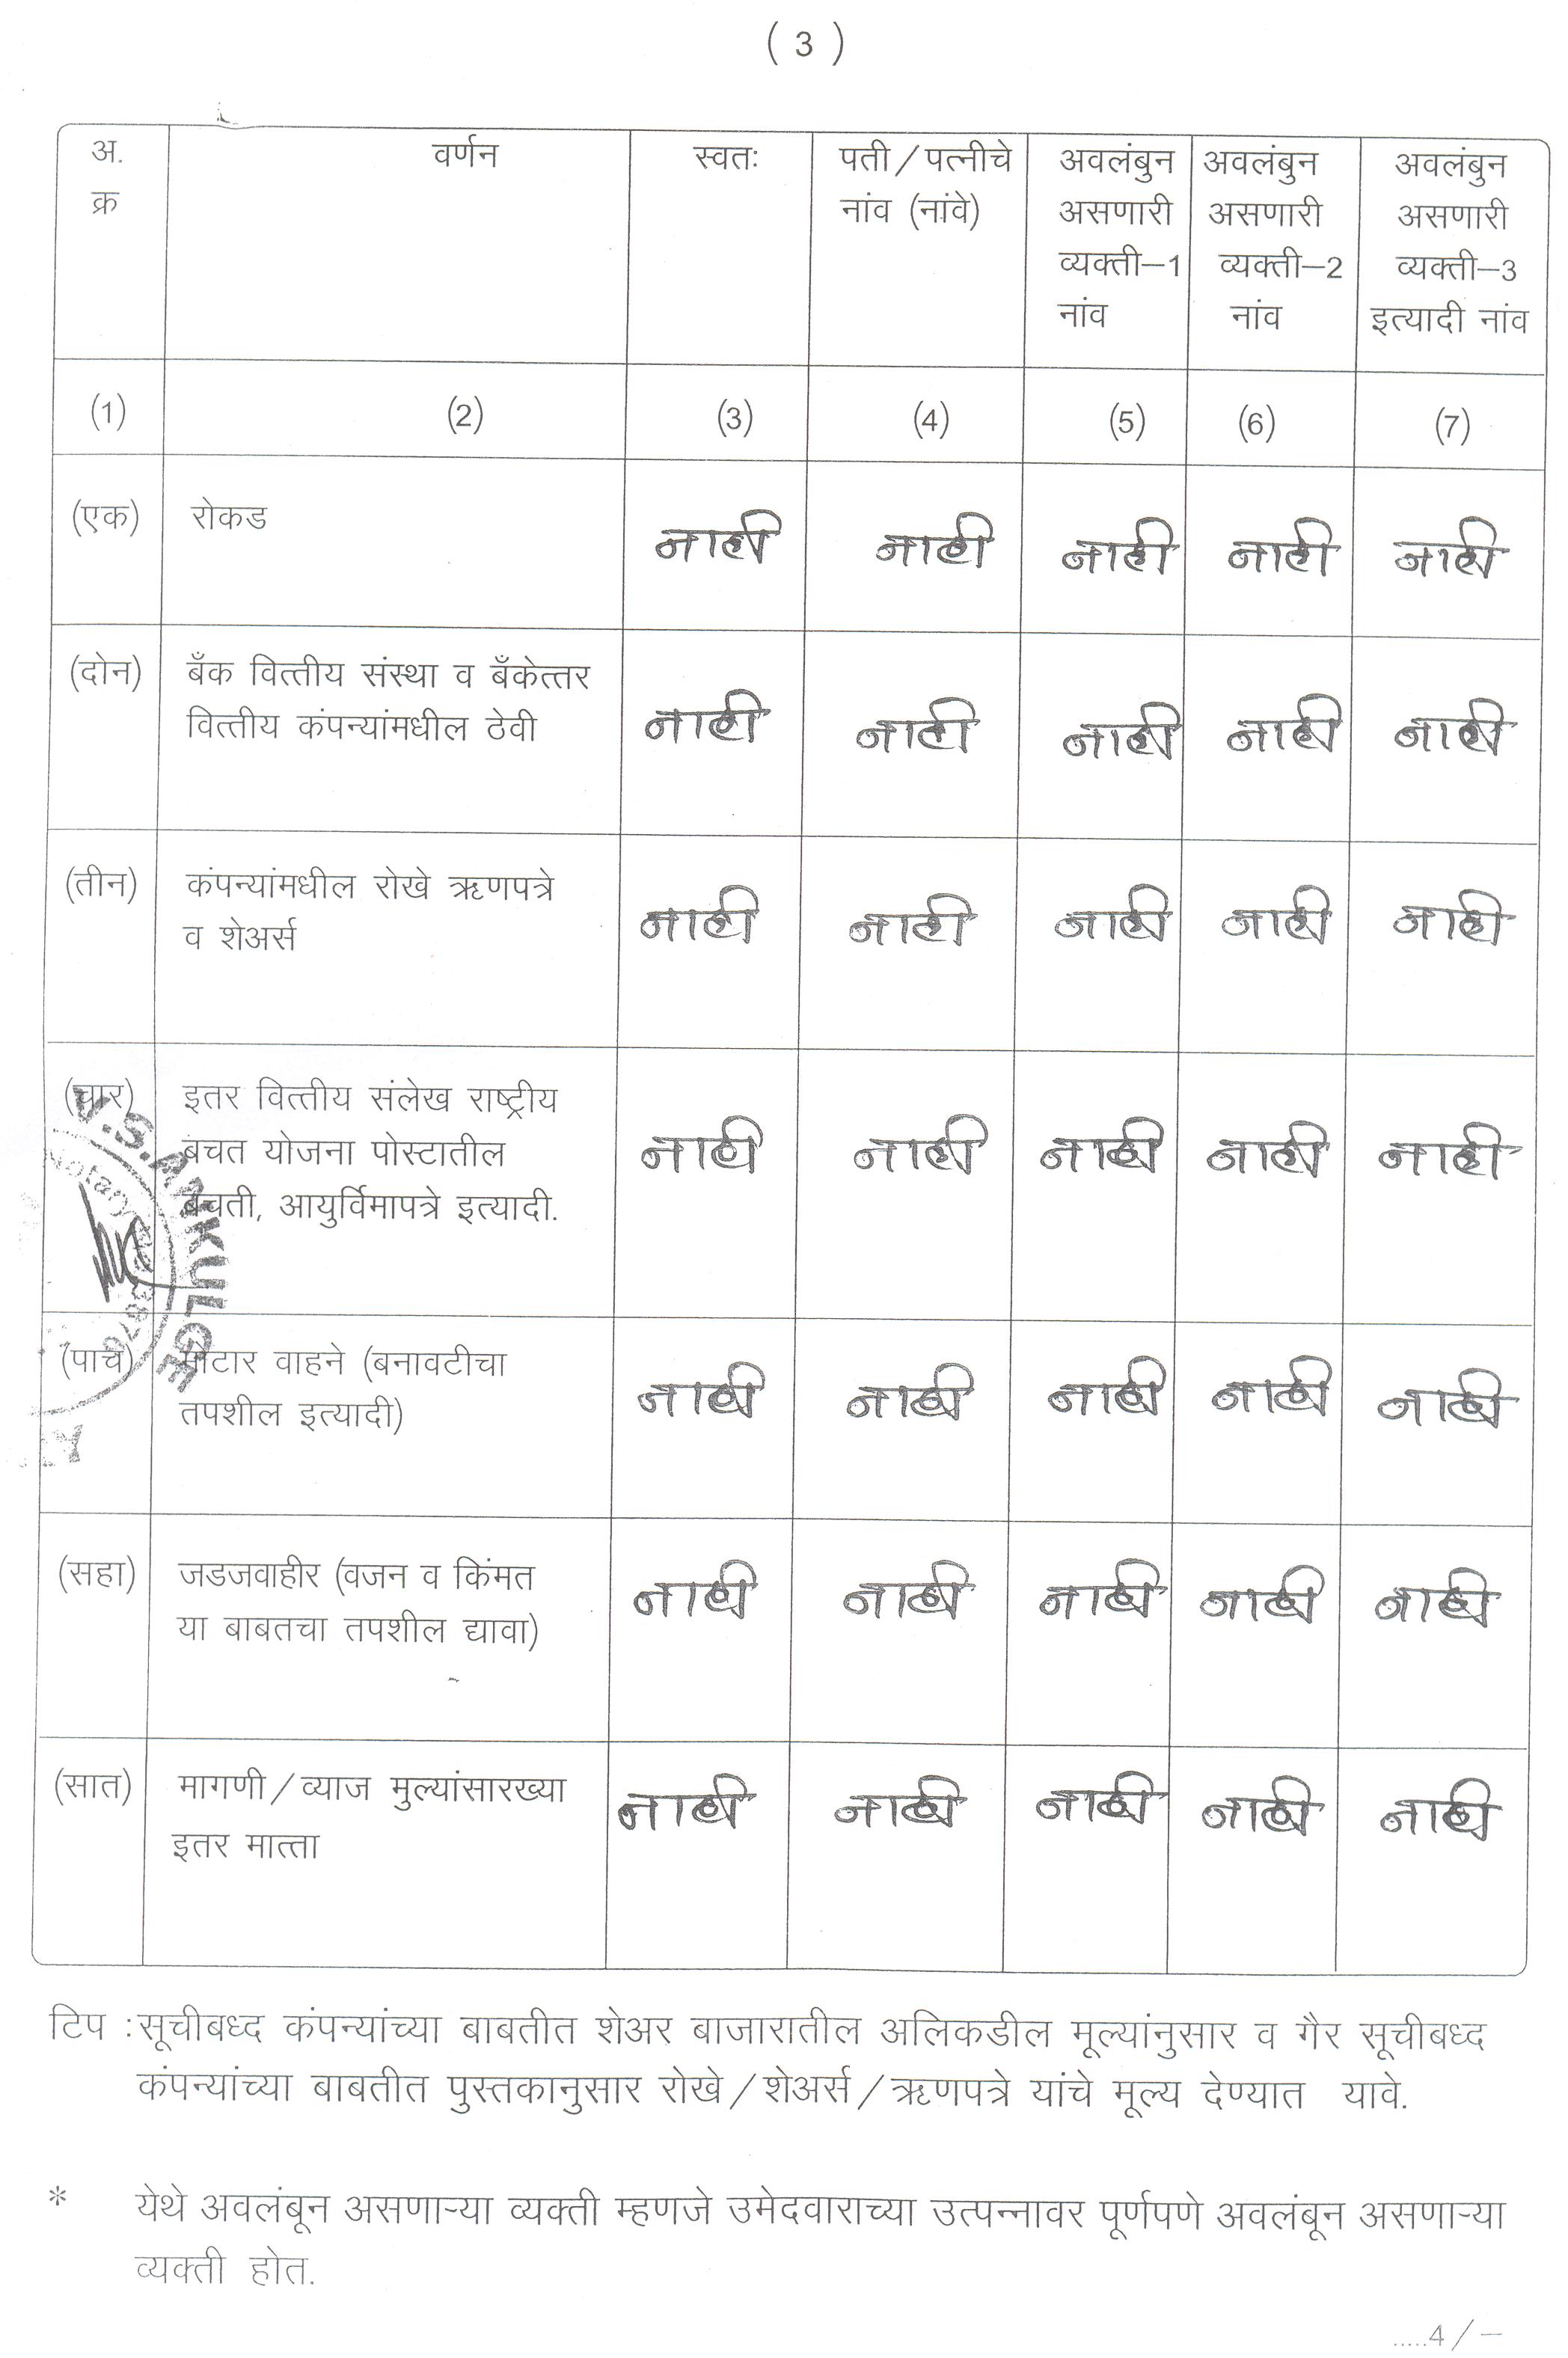 ( 3 )
अ. क्र
वर्णन
स्वतः
पती/पत्नीचे नांव (नांवे)
अवलंबुन असणारी व्यक्ती–1 नांव
अवलंबुन असणारी व्यक्ती–2 नांव
अवलंबुन असणारी व्यक्ती–3 इत्यादी नांव
(1) (2) (3) (4) (5) (6) (7)
(एक) रोकड
नाही नाही नाही नाही नाही
(दोन) बँक वित्तीय संस्था व बँकेत्तर
वित्तीय कंपन्यांमधील ठेवी
नाही नाही नाही नाही नाही
(तीन) कंपन्यांमधील रोखे ऋणपत्रे
व शेअर्स
नाही नाही नाही नाही नाही
(चार) इतर वित्तीय संलेख राष्ट्रीय
बचत योजना पोस्टातील
बचती, आयुर्विमापत्रे इत्यादी.
नाही नाही नाही नाही नाही
(पाच) मोटार वाहने (बनावटीचा
तपशील इत्यादी)
नाही नाही नाही नाही नाही
(सहा) जडजवाहीर (वजन व किंमत
या बाबतचा तपशील द्यावा)
नाही नाही नाही नाही नाही
(सात) मागणी/व्याज मुल्यांसारख्या
इतर मात्ता
नाही नाही नाही नाही नाही
Notary
टिप :सूचीबध्द कंपन्यांच्या बाबतीत शेअर बाजारातील अलिकडील मूल्यांनुसार व गैर सूचीबध्द
कंपन्यांच्या बाबतीत पुस्तकानुसार रोखे/शेअर्स/ऋणपत्रे यांचे मूल्य देण्यात यावे.
* येथे अवलंबून असणाऱ्या व्यक्ती म्हणजे उमेदवाराच्या उत्पन्नावर पूर्णपणे अवलंबून असणाऱ्या
व्यक्ती होत.
.....4/–